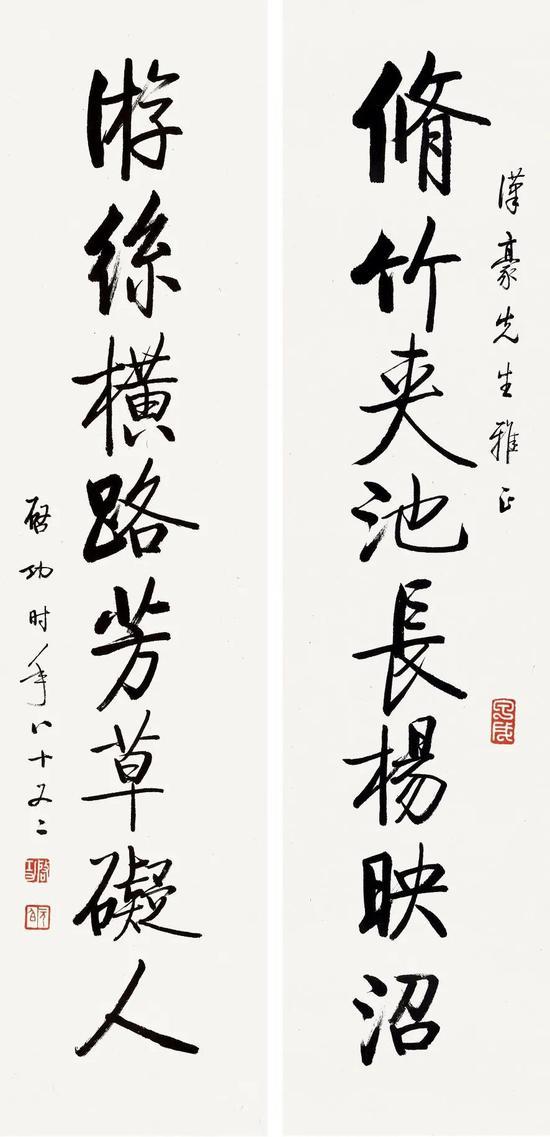 漢豪先生雅正
脩竹夾池長楊映沼
游絲橫路芳草礙人
啓功时年八十又二
啓功
元白